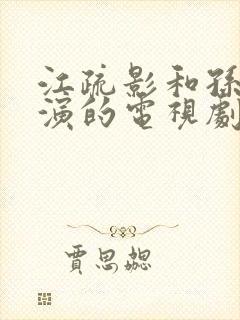 江疏影和孫
演的電視劇
賈思勰